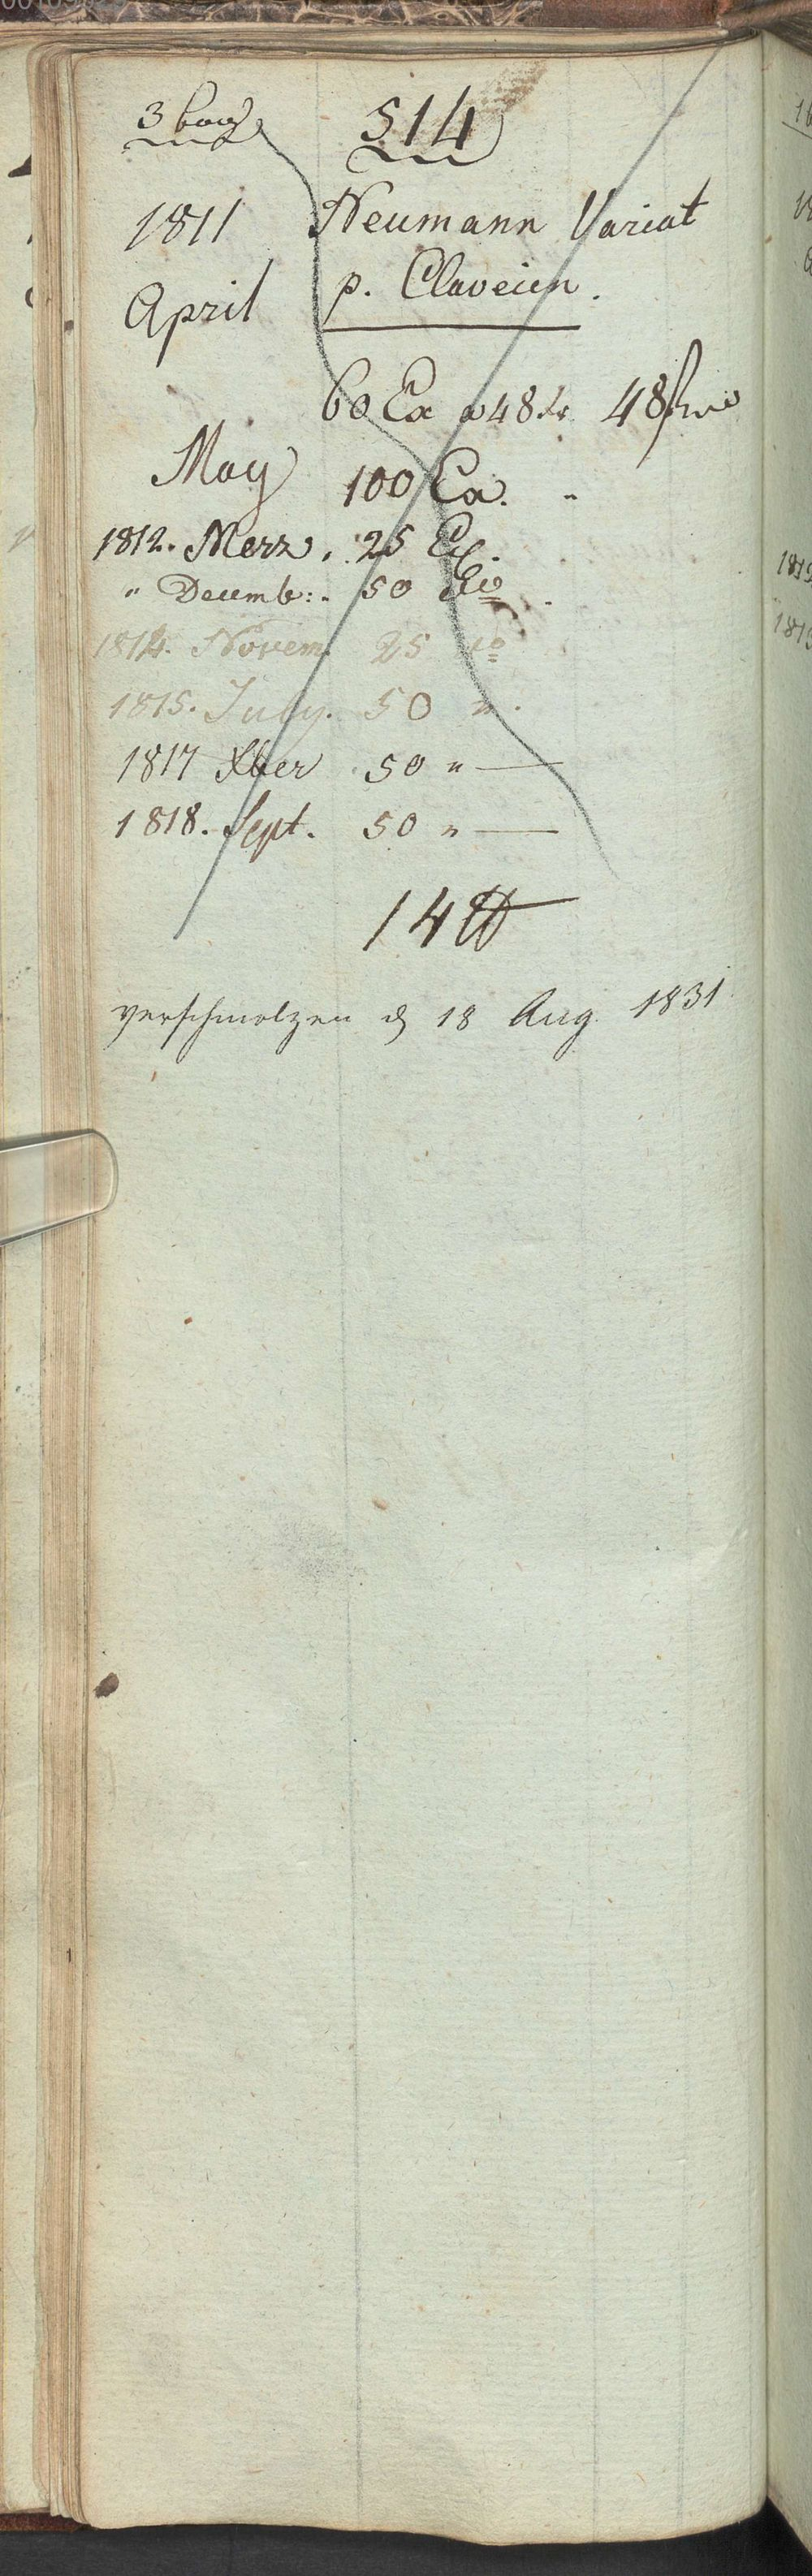 3 bog 514
1811 Neumann Variat
April p. Claveicin.
60 Ex a 48 kr 48
May 100 Ex. "
1812. Merz. 25 Ex.
" Decemb:. 50 Ex
1814. Novem. 25 do
1815. July. 50 ".
1817 Xber 50 " —
1818. Sept. 50 " —
14 ℔
verschmolzen d 18 Aug. 1831